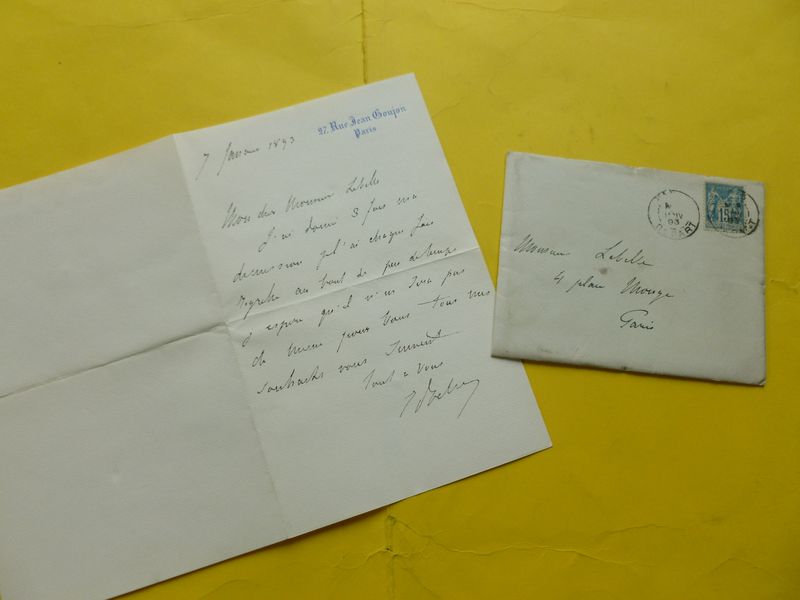 27, Rue Jean Goujon
Paris
7 Janvier 1893
Mon cher Monsieur Lebelle
J'ai donné 3 fois ma
démission je l'ai chaque fois
regretté au bout de peu de temps
j'espère qu'il n'en sera pas
de même pour vous tous mes
souhaits vous suivent
tout à vous
Monsieur Lebelle
4 place Monge
Paris
JANV
93
DEPART
15